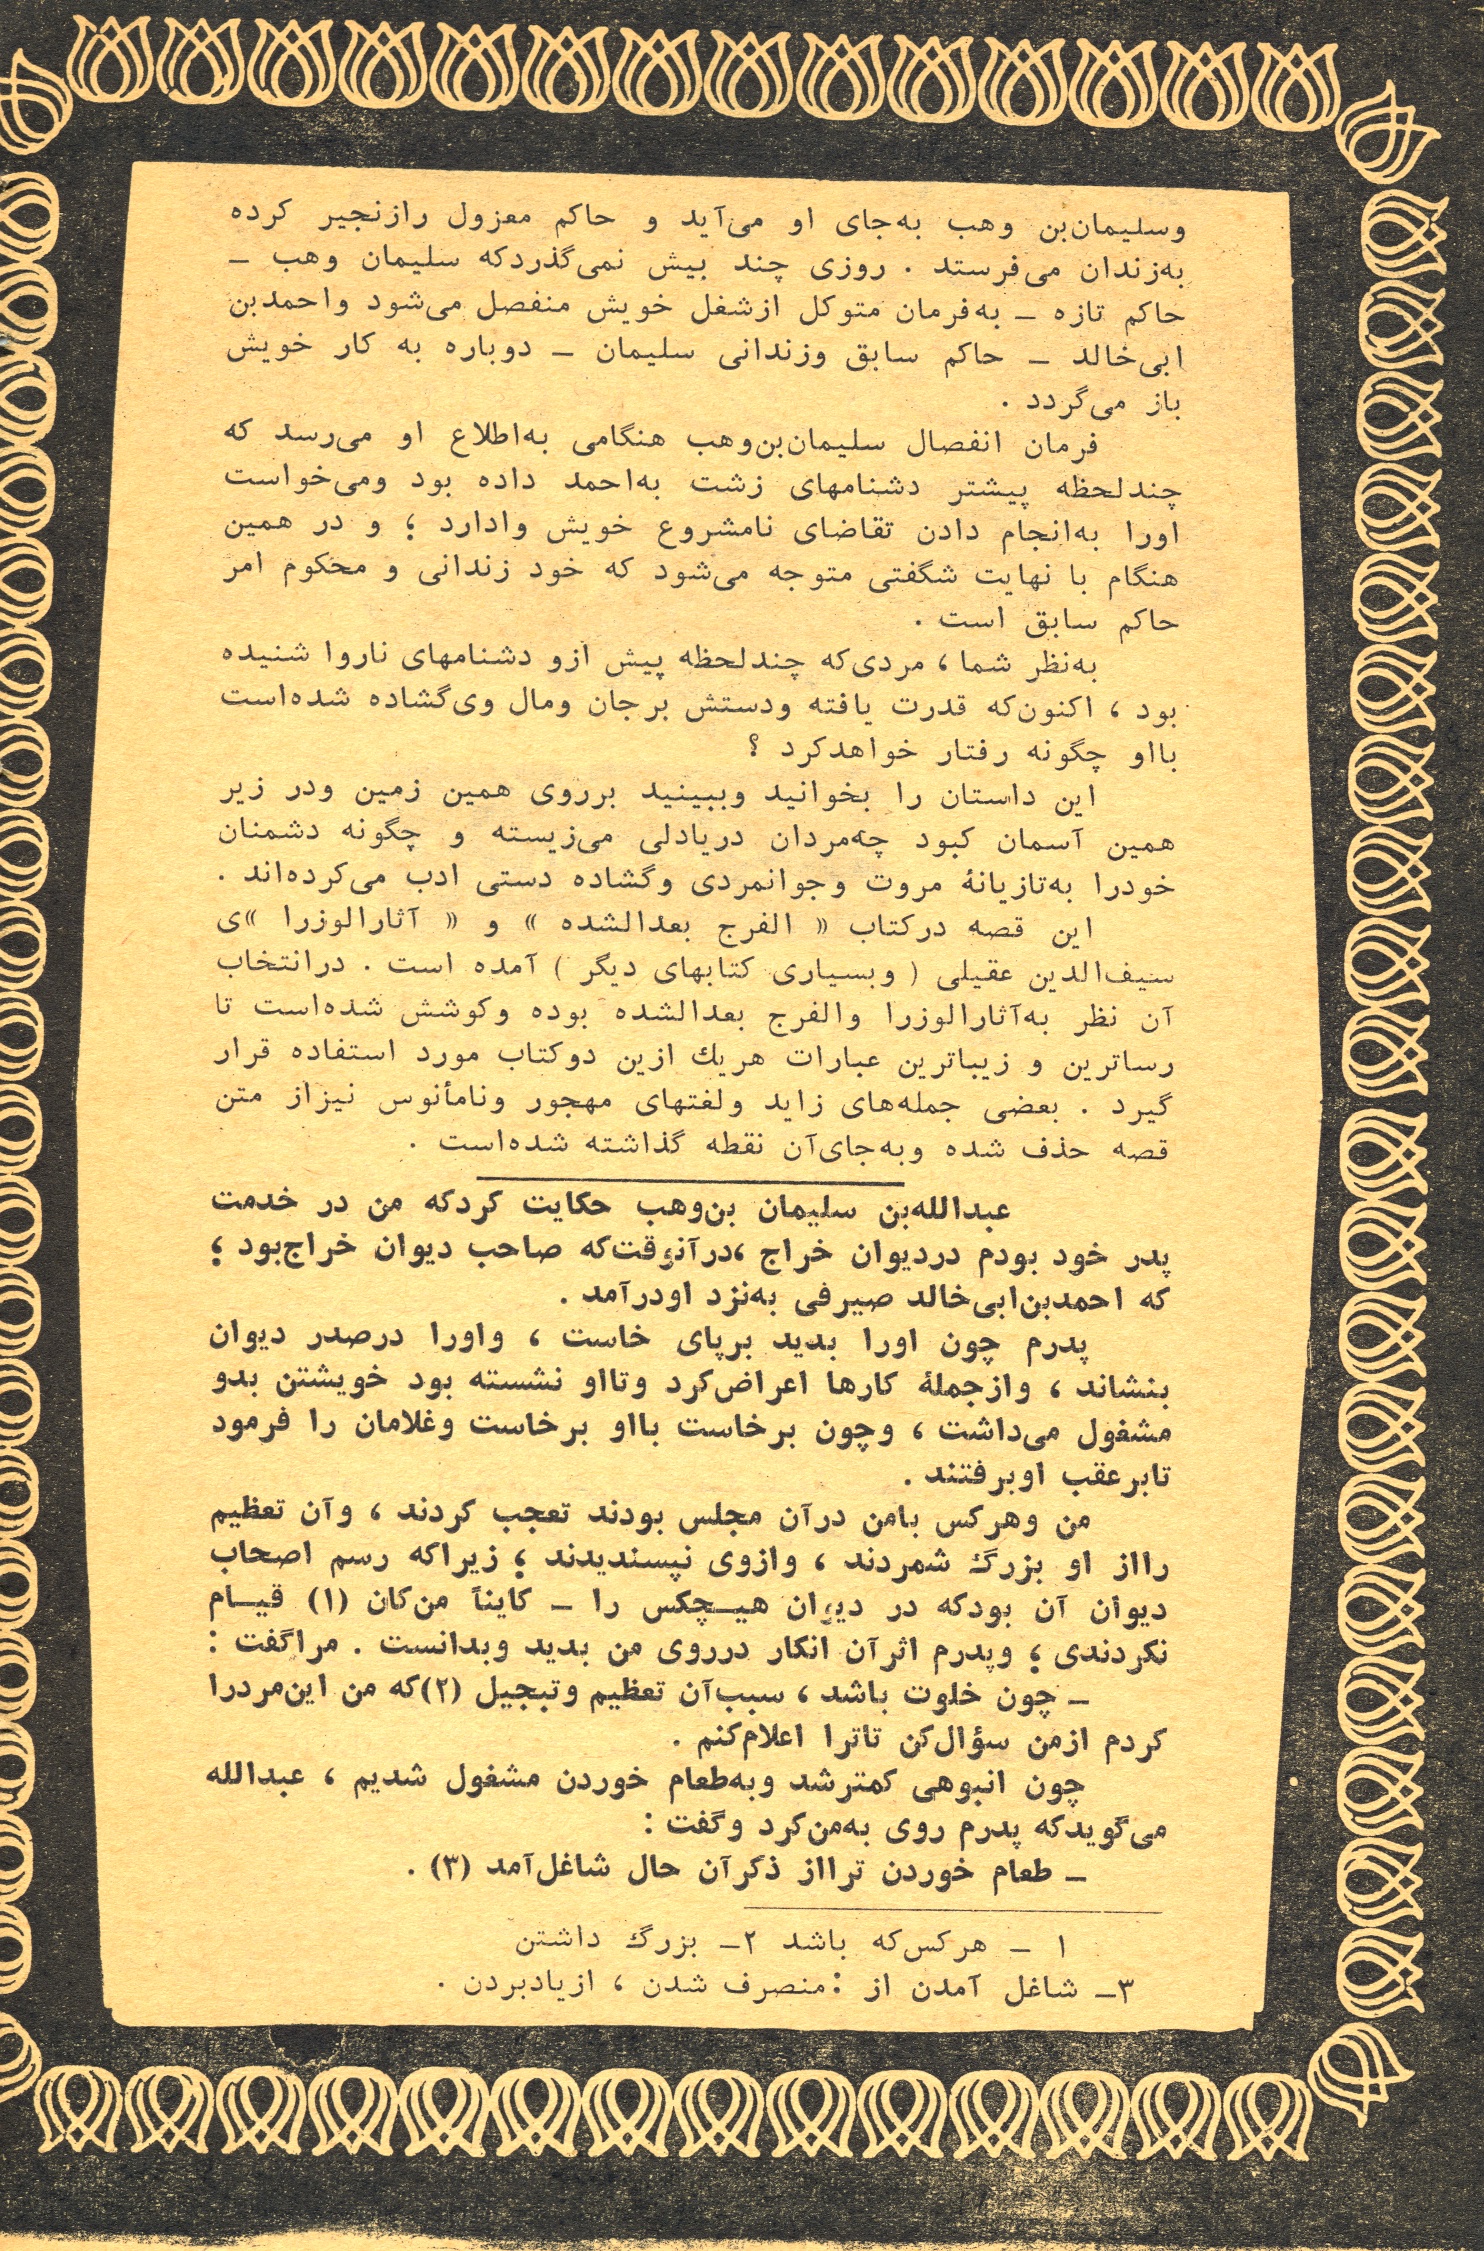 وسلیمان‌بن وهب به‌جای او می‌آید و حاکم معزول رازنجیر کرده
به‌زندان می‌فرستد . روزی چند بیش نمی‌گذردکه سلیمان وهب ـ
حاکم تازه ـ به‌فرمان متوکل ازشغل خویش منفصل می‌شود واحمدبن
ابی‌خالد ـ حاکم سابق وزندانی سلیمان ـ دوباره به کار خویش
باز می‌گردد .
فرمان انفصال سلیمان‌بن‌وهب هنگامی به‌اطلاع او می‌رسد که
چندلحظه پیشتر دشنامهای زشت به‌احمد داده بود ومی‌خواست
اورا به‌انجام دادن تقاضای نامشروع خویش وادارد ؛ و در همین
هنگام با نهایت شگفتی متوجه می‌شود که خود زندانی و محکوم امر
حاکم سابق است .
به‌نظر شما ، مردی‌که چندلحظه پیش ازو دشنامهای ناروا شنیده
بود ، اکنون‌که قدرت یافته ودستش برجان ومال وی‌گشاده شده‌است
بااو چگونه رفتار خواهدکرد ؟
این داستان را بخوانید وببینید برروی همین زمین ودر زیر
همین آسمان کبود چه‌مردان دریادلی می‌زیسته و چگونه دشمنان
خودرا به‌تازیانهٔ مروت وجوانمردی وگشاده دستی ادب می‌کرده‌اند .
این قصه درکتاب « الفرج بعدالشده » و « آثارالوزرا »ی
سیف‌الدین عقیلی ( وبسیاری کتابهای دیگر ) آمده است . درانتخاب
آن نظر به‌آثارالوزرا والفرج بعدالشده بوده وکوشش شده‌است تا
رساترین و زیباترین عبارات هریك ازین دوکتاب مورد استفاده قرار
گیرد . بعضی جمله‌های زاید ولغتهای مهجور ونامأنوس نیزاز متن
قصه حذف شده وبه‌جای‌آن نقطه گذاشته شده‌است .
عبدالله‌بن سلیمان بن‌وهب حکایت کردکه من در خدمت
پدر خود بودم دردیوان خراج ،درآنوقت‌که صاحب دیوان خراج‌بود ؛
که احمدبن‌ابی‌خالد صیرفی به‌نزد اودرآمد .
پدرم چون اورا بدید برپای خاست ، واورا درصدر دیوان
بنشاند ، وازجملهٔ کارها اعراض‌کرد وتااو نشسته بود خویشتن بدو
مشغول می‌داشت ، وچون برخاست بااو برخاست وغلامان را فرمود
تابرعقب اوبرفتند .
من وهرکس بامن درآن مجلس بودند تعجب کردند ، وآن تعظیم
رااز او بزرگ شمردند ، وازوی نپسندیدند ؛ زیراکه رسم اصحاب
دیوان آن بودکه در دیوان هیـچکس را ـ کایناً من‌کان (۱) قیـام
نکردندی ؛ وپدرم اثرآن انکار درروی من بدید وبدانست . مراگفت :
ـ چون خلوت باشد ، سبب‌آن تعظیم وتبجیل (۲)که من این‌مردرا
کردم ازمن سؤال‌کن تاترا اعلام‌کنم .
چون انبوهی کمترشد وبه‌طعام خوردن مشغول شدیم ، عبدالله
می‌گویدکه پدرم روی به‌من‌کرد وگفت :
ـ طعام خوردن ترااز ذکرآن حال شاغل‌آمد (۳) .
۱ ـ هرکس‌که باشد ۲ـ بزرگ داشتن
۳ـ شاغل آمدن از : منصرف شدن ، ازیادبردن .